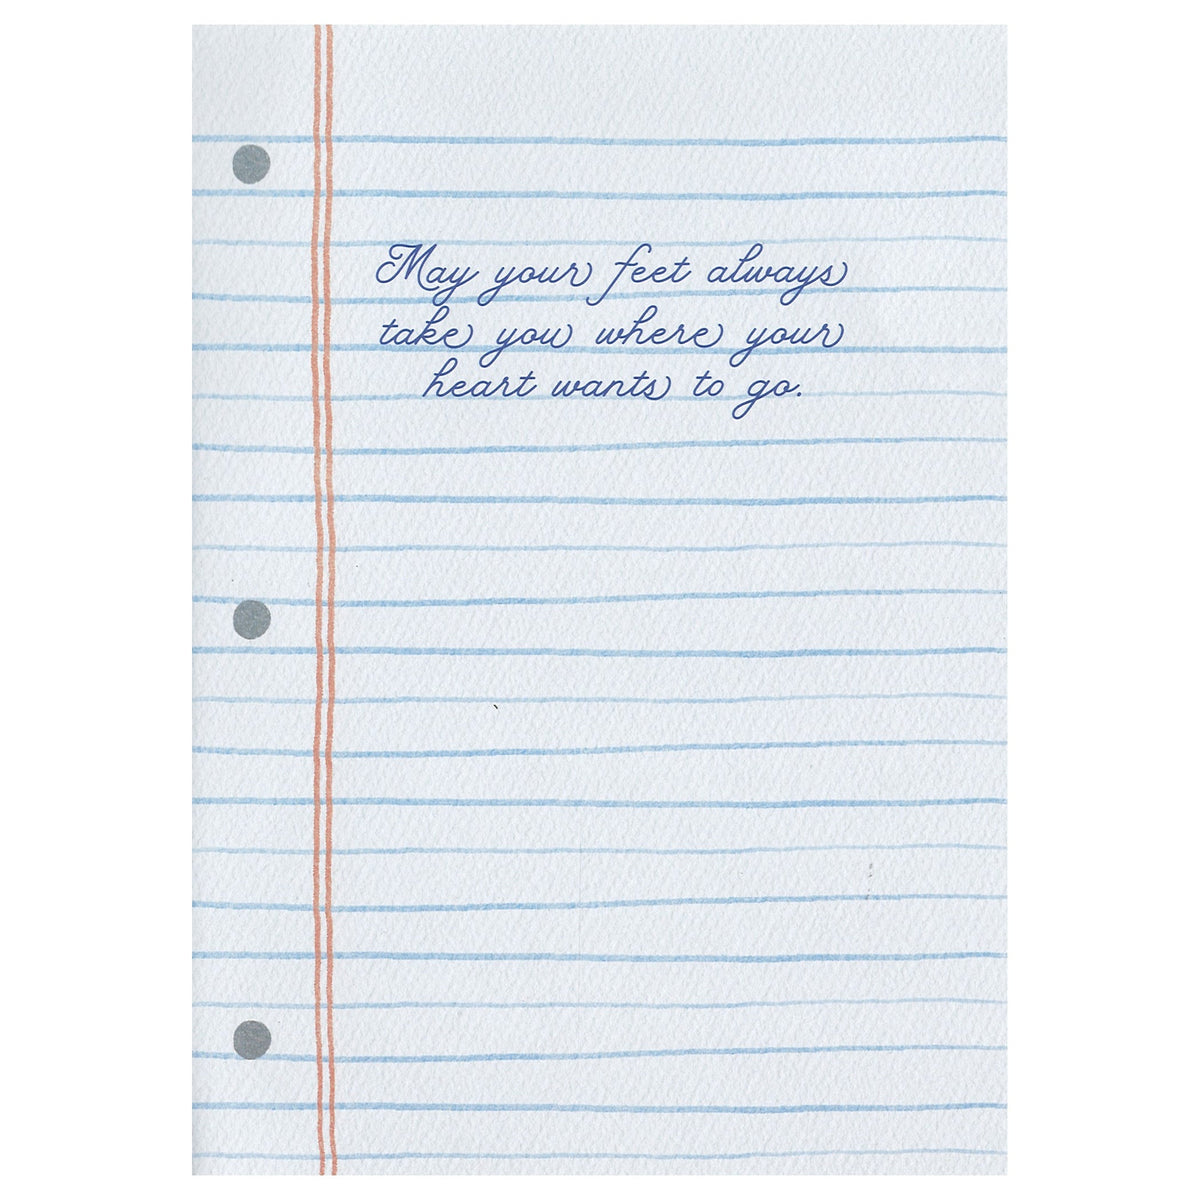 May your feet always
take you where your
heart wants to go.